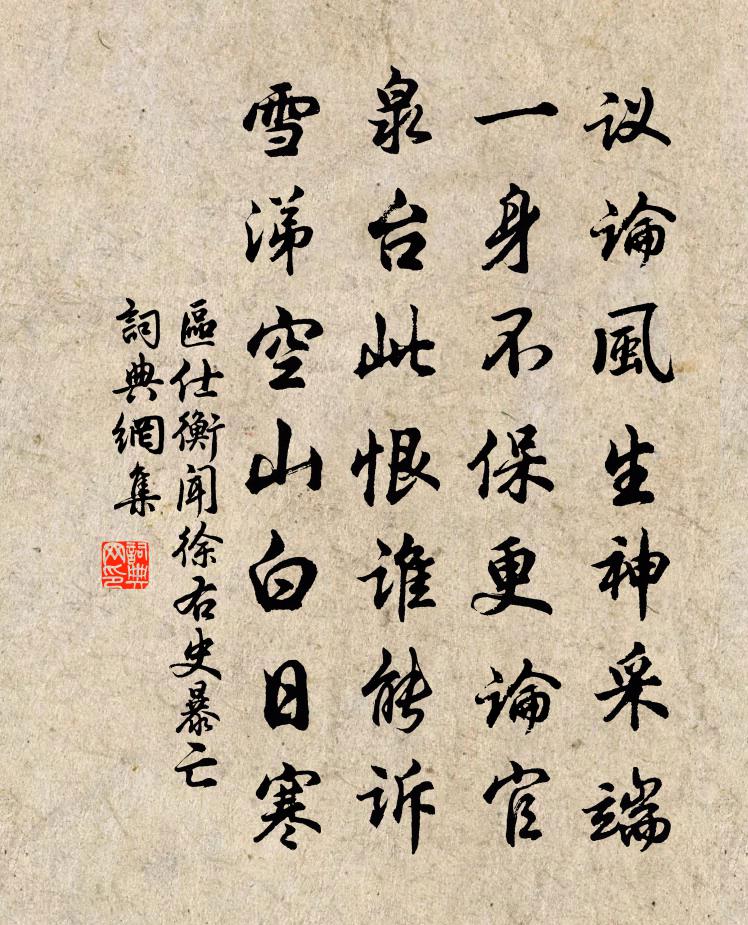 议论風生神采端
一身不保更论官
泉台此恨谁能诉
雪涕空山白日寒
區仕衡闻徐右史暴亡
詞典網集
詞典网印